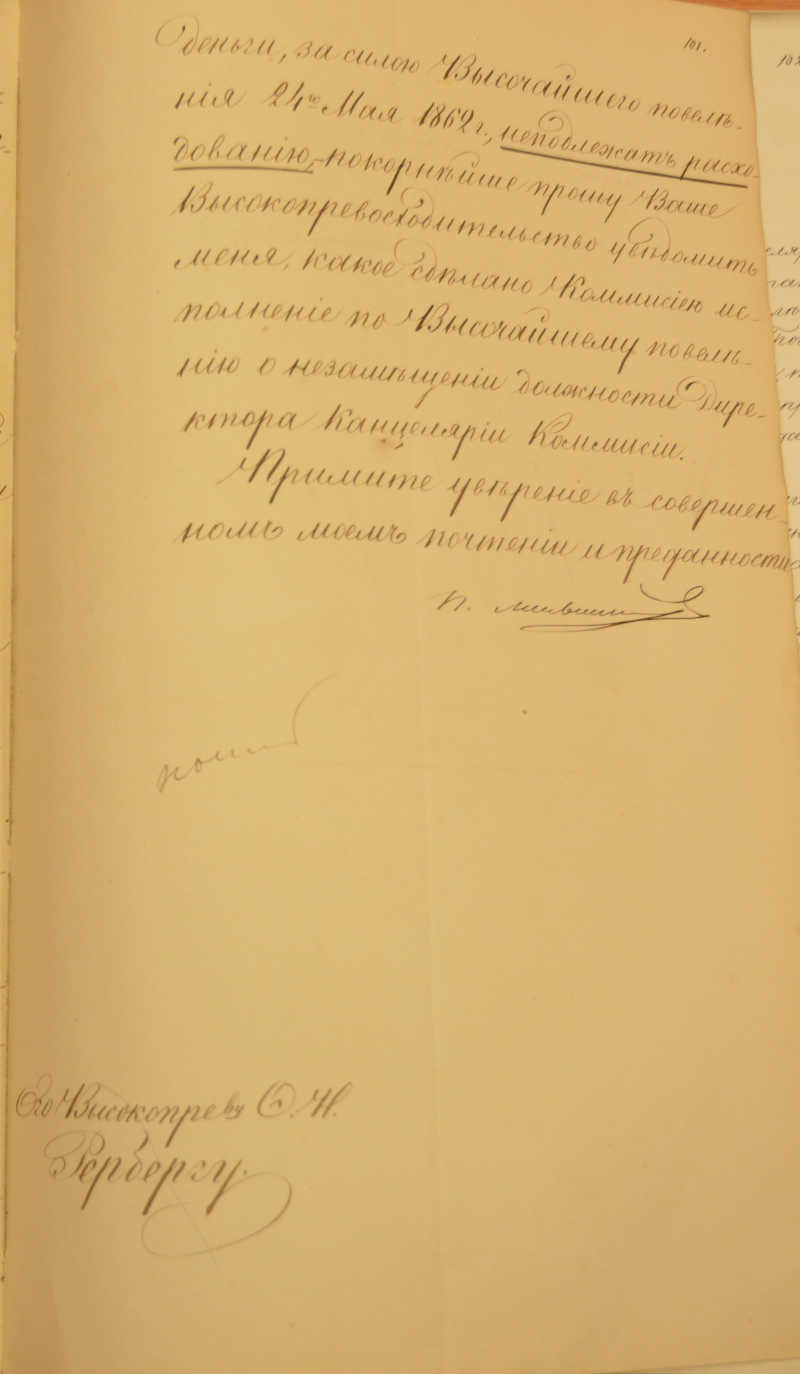 101.
деньги, за силою Высочайшаго повелѣ-
нія 24го Мая 1862 г., неподлежатъ расхо-
дованію, – покорнѣйше прошу Ваше
Высокопревосходительство увѣдомить
меня, какое сдѣлано Коммисіею ис-
полненіе по Высочайшему повелѣ-
нію о незамѣщеніи должности Дире-
ктора Канцеляріи Коммисіи.
Примите увѣреніе въ совершен-
номъ моемъ почтеніи и преданности
Его Высокопре ву Ѳ. И.